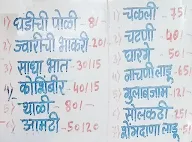 १) घडीची पोळी - 8/-
२) ज्वारीची भाकरी 20/-
३) साधा भात - 30/15
४) कोशिंबीर - 40/15
५) थाळी - 80/-
आमटी - 50/20
१) चकली - 75/
२) चटणी - 40/
३) घारगे - 50/
४) नाचणी लाडू - 65/
५) गुलाबजाम - 12/
सोलकढी - 25/
शेंगदाणा लाडू